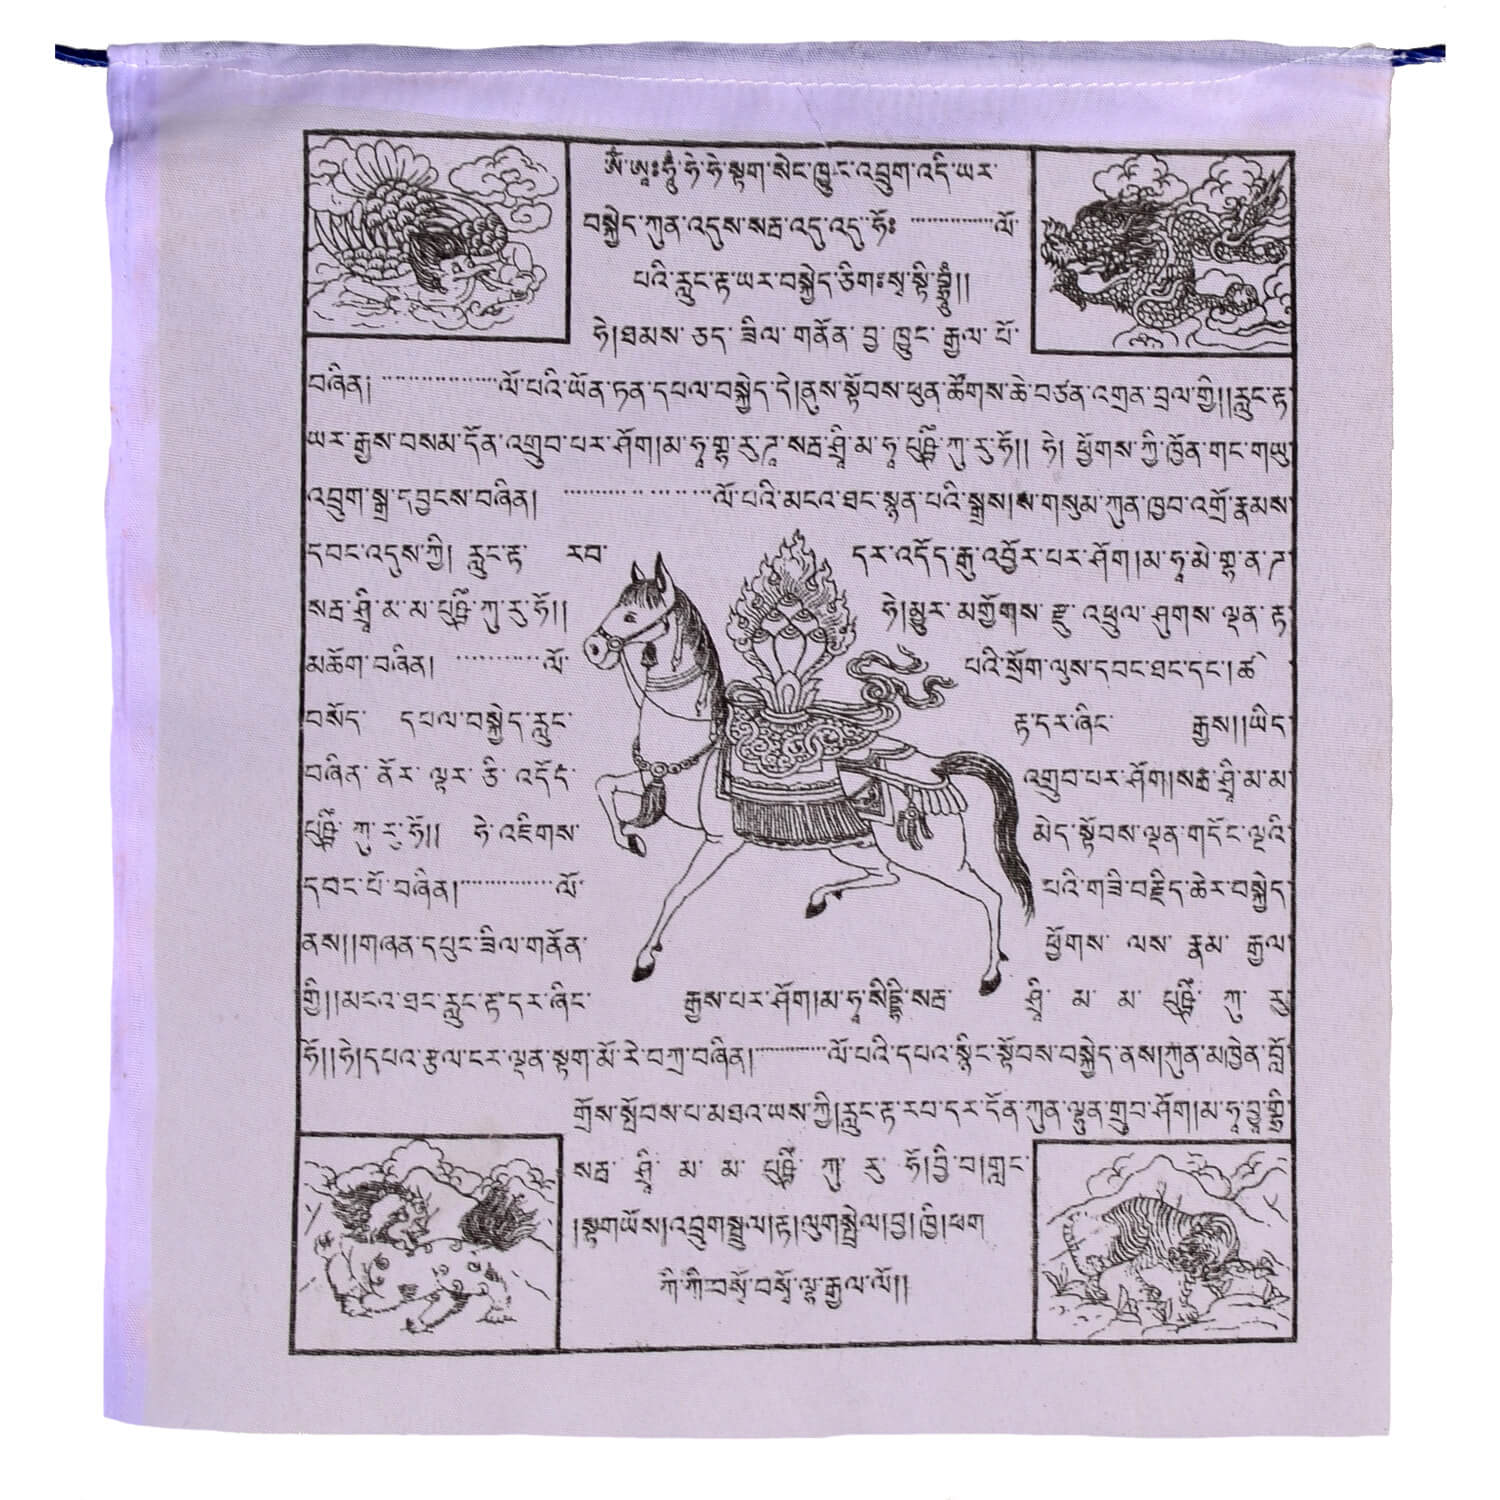 ཨོཾ་ཨཱཿཧཱུྃ་ཧེ་ཧེ་སྟག་སེང་ཁྱུང་འབྲུག་འདི་ཡར་
བསྐྱེད་ཀུན་འདུས་སརྦ་འདུ་འདུ་ཧོཿ ་་་་་་་་་་་་་་་ལོ་
པའི་རླུང་རྟ་ཡར་བསྐྱེད་ཅིག
ཧེ།ཐམས་ཅད་ཟིལ་གནོན་བྱ་ཁྱུང་རྒྱལ་པོ་
བཞིན། ་་་་་་་་་་་་་་་་ལོ་པའི་ཡོན་ཏན་དཔལ་བསྐྱེད་དེ།ནུས་སྟོབས་ཕུན་ཚོགས་ཆེ་བཙན་འགྲན་བྲལ་གྱི།།རླུང་རྟ་
ཡར་རྒྱས་བསམ་དོན་འགྲུབ་པར་ཤོག།མ་ཧཱ་ ཀུ་རུ་ཧོ།། ཧེ། ཕྱོགས་ཀྱི་ཁྱོན་གང་གཡུ་
འབྲུག་སྒྲ་དབྱངས་བཞིན། ་་་་་་་་་་་་་་་་ལོ་པའི་མངའ་ཐང་སྙན་པའི་སྒྲས།ས་གསུམ་ཀུན་ཁྱབ་འགྲོ་རྣམས་
དབང་འདུས་ཀྱི། རླུང་རྟ་ རབ་ དར་འདོད་རྒུ་འབྱོར་པར་ཤོག།མ་ཧཱ་མེ་གྷ་ན་ཊ་
སརྦ་ཤྲཱི་མ་མ་པུཥྚིཾ་ཀུ་རུ་ཧོ།། ཧེ།མྱུར་མགྱོགས་རྫུ་འཕྲུལ་ཤུགས་ལྡན་རྟ་
མཆོག་བཞིན། ་་་་་་་་་་་ལོ་ པའི་སྲོག་ལུས་དབང་ཐང་དང་།ཚེ་
བསོད་ དཔལ་བསྐྱེད་རླུང་ རྟ་དར་ཞིང་ རྒྱས།།ཡིད་
བཞིན་ནོར་ལྟར་ཅི་འདོད་ འགྲུབ་པར་ཤོག།སརྦ་ཤྲཱི་མ་མ་
པུཥྚིཾ་ཀུ་རུ་ཧོ།། ཧེ་འཇིགས་ མེད་སྟོབས་ལྡན་གདོང་ལྔའི་
དབང་པོ་བཞིན།་་་་་་་་་་་་་ལོ་ པའི་གཟི་བརྗིད་ཆེར་བསྐྱེད་
ནས།།གཞན་དཔུང་ཟིལ་གནོན་ ཕྱོགས་ལས་རྣམ་རྒྱལ་
གྱི།།མངའ་ཐང་རླུང་རྟ་དར་ཞིང་ རྒྱས་པར་ཤོག།མ་ཧཱ་ སརྦ་ ཤྲཱི་མ་མ་པུཥྚིཾ་ཀུ་རུ་
ཧོ།།ཧེ།དཔའ་རྩལ་ངར་ལྡན་སྟག་མོ་རི་བཀྲ་བཞིན།་་་་་་་་་་་ལོ་པའི་དཔའ་སྙིང་སྟོབས་བསྐྱེད་ནས།ཀུན་མཁྱེན་བློ་
གྲོས་སྤོབས་པ་མཐའ་ཡས་ཀྱི།རླུང་རྟ་རབ་དར་དོན་ཀུན་ལྷུན་གྲུབ་ཤོག།མ་ཧཱ་
སརྦ་ཤྲཱི་མ་མ་པུཥྚིཾ་ཀུ་རུ་ཧོ།བྱི་བ།གླང་
།སྟག་ཡོས།འབྲུག་སྦྲུལ།རྟ།ལུག་སྤྲེལ།བྱ།ཁྱི།ཕག
ཀི་ཀི་བསྭོ་བསྭོ་ལྷ་རྒྱལ་ལོ།།